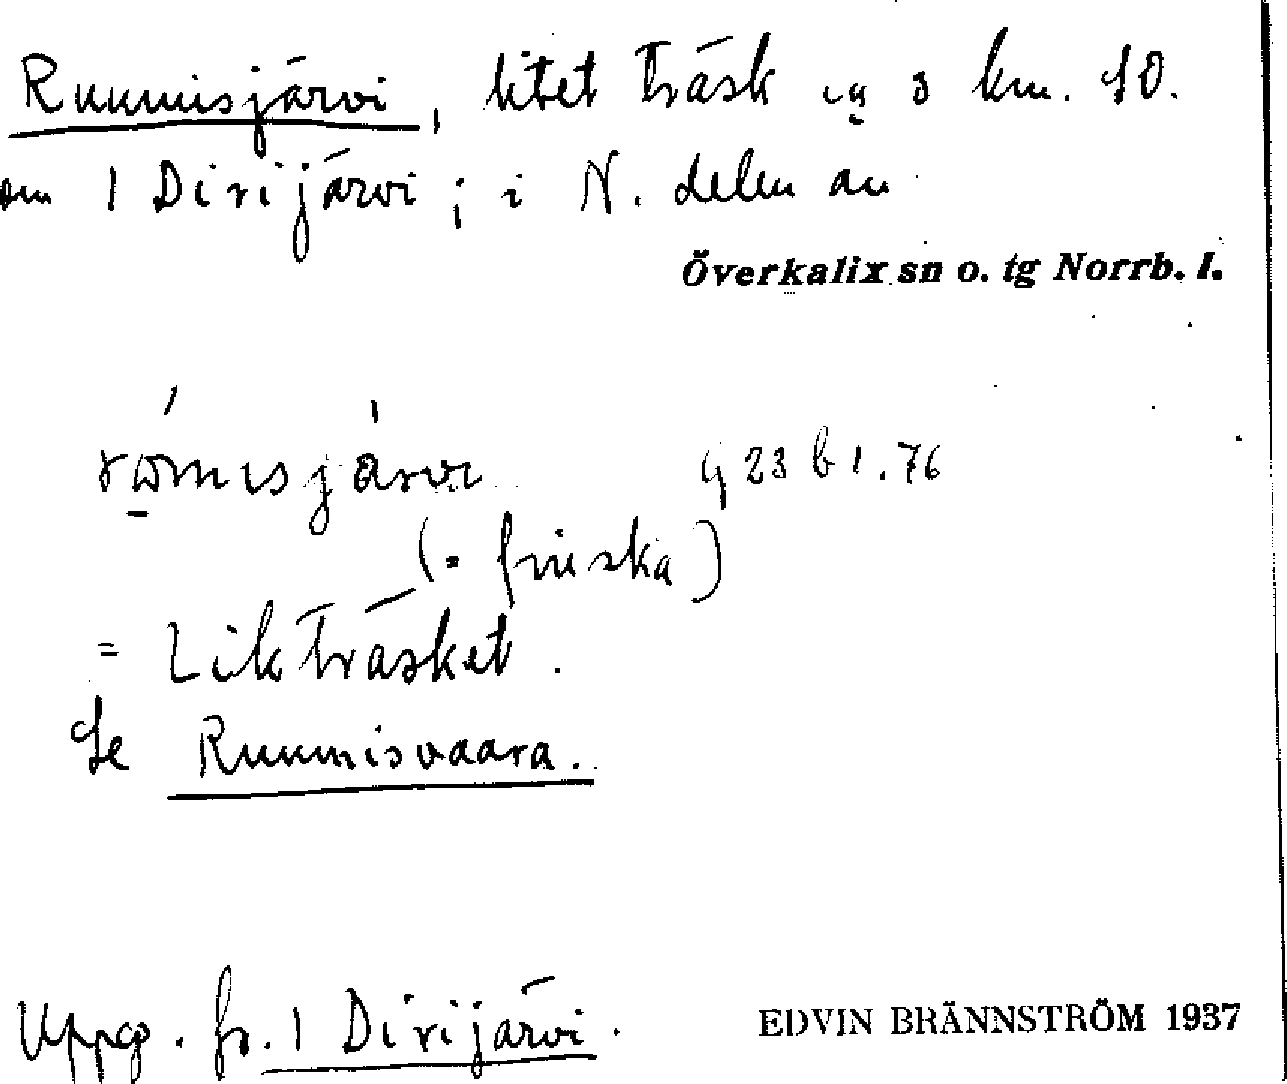 Ruumisjärvi, litet träsk ca 3 km. SO.
om 1 Dirijärvi; i N. delen av
Överkalix sn o. tg Norrb. l.
rωmɩsjärvɩ
(= finska)
= Likträsket.
Se Ruumisvaara.
Uppg. fr. 1 Dirijärvi.
EDVIN BRÄNNSTRÖM 1937